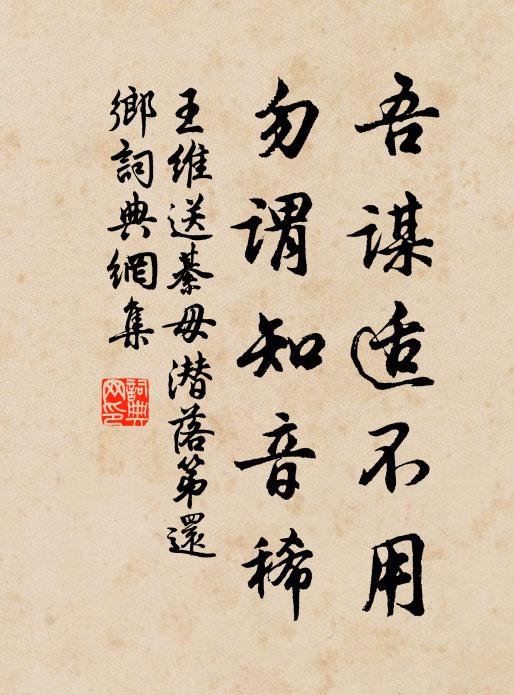 吾谋适不用
勿谓知音稀
王维送綦毋潜落第還
鄉詞典網集
詞典
网印